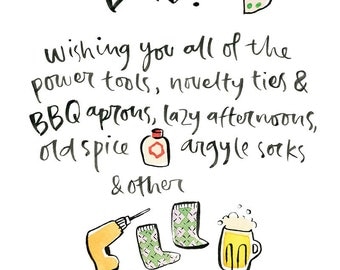 wishing you all of the
power tools, novelty ties &
BBQ aprons, lazy afternoons,
old spice argyle socks
& other